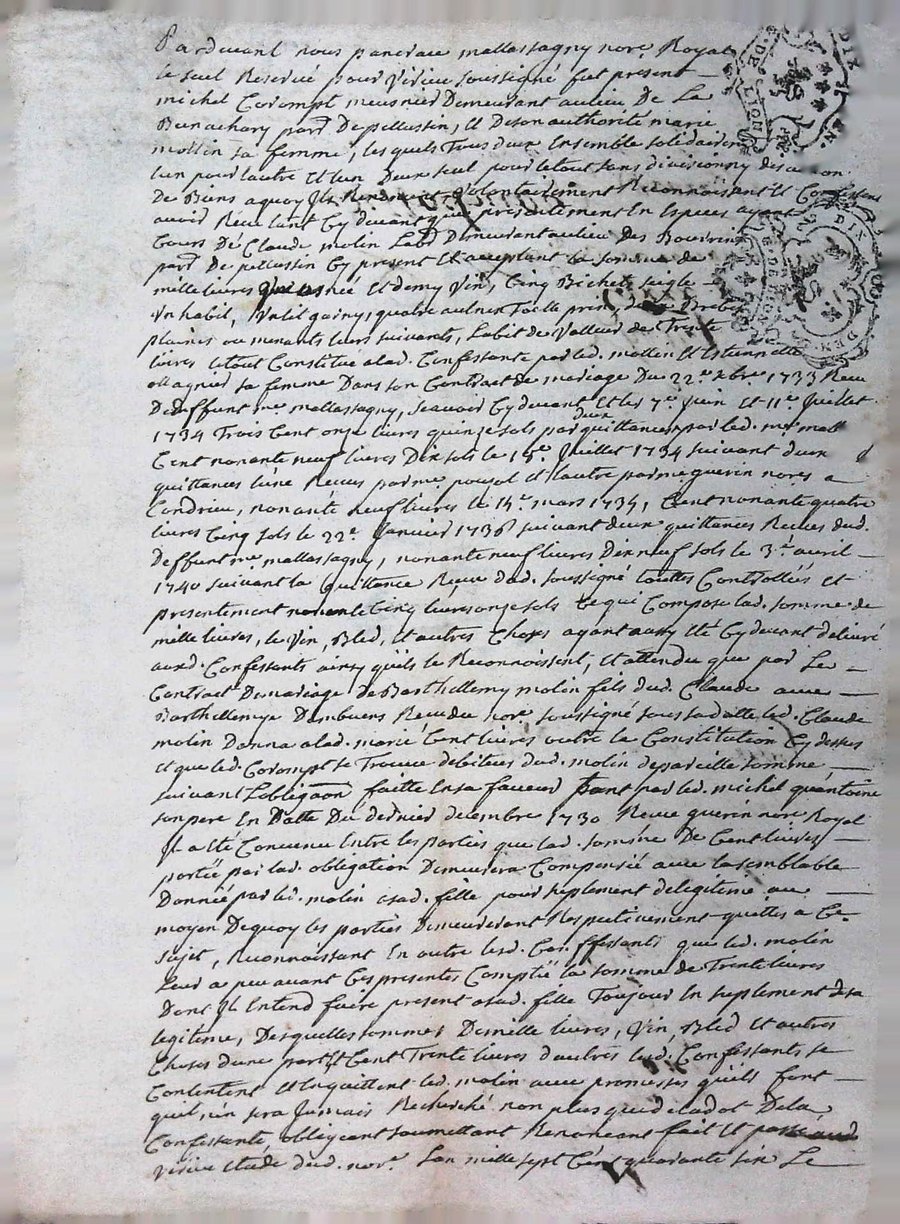 Pardevant nous pancrace mallassagny nore Royal
le seul Reservé pour Virieu soussigné fut present
michel Corompt meusnier Demeurant au lieu De La
Bunachary parr. De pellussin, et De son authorité marie
mollin sa femme, lesquels Tous deux Ensemble solidairem.
lun pour lautre Et lun Deux seul pour le tout sans division ny
De Biens a quoy Ils Renoncent Volontairement Reconnoissent Et Confessent
avoir Receu tant Cy devant que presentement En Especes ayant
Cours De Claude molin Labr. Demeurant au lieu Des
parr. De pellussin Cy present Et acceptant la somme de
mille livres asnée Et demy Vin, Cinq Bichets seigle
Un habit, Un lit garny, quatre aulnes Toille prin, Brebis
plaines ou menants leurs suivants, Labit de Valleur de Trente
livres le tout Constitué a lad. Confessante par led. mollin Et Estiennette
magnier sa femme Dans son Contract de mariage Du 22.e xbre 1733 Receu
De deffunt me mallassagny, scavoir Cy devant Et les 7.e juin Et 11.e Juillet
1734 Trois Cent onze livres quinze sols par deux quittances par led. me mall
Cent nonante neuf livres Dix sols le 15.e Juillet 1734 suivant deux
quittances lune Receue par me pouzol Et lautre par me guerin nores a
Condrieu, nonante neuf livres le 14.e mars 1735, Cent nonante quatre
livres Cinq sols le 22.e Janvier 1736 suivant deux quittances Receues dud.
Deffunt me mallassagny, nonante neuf livres Dix neuf sols le 3.e avril
1740 suivant la quittance Receue dud. soussigné touttes Controllées Et
presentement nonante Cinq livres onze sols Ce qui Compose lad. somme de
mille livres, le Vin, Bled, Et autres Choses ayant aussy Eté Cy devant delivré
auxd. Confessants ainsy quils le Reconnoissent, Et attendu que par Le
Contract De mariage De Barthellemy molin fils dud. Claude avec
Barthellemye Dambuens Receu du nore soussigné sous sa datte led. Claude
molin Donna a lad. marie Cent livres outre la Constitution Cy dessus
Et que led. Corompt se Trouve debiteur dud. molin de pareille somme
suivant Lobligaon faitte En sa faveur tant par led. michel quantoine
son pere En Datte Du dernier decembre 1730 Receue guerin nore Royal
Il a Eté Convenu Entre les parties que lad. somme De Cent livres
portée par lad. obligation Demeurera Compensée avec la semblable
Donnée par led. molin a sad. fille pour suplement de legitime au
moyen De quoy les parties Demeureront Respectivement quittes a Ce
sujet, Reconnoissant En outre lesd. Confessants que led. molin
leur a peu avant Ces presentes Compté la somme de Trente livres
Dont Il Entend faire present a sad. fille Toujour En suplement de sa
legitime, Desquelles sommes De mille livres, Vin, Bled Et autres
Choses dune part Et Cent Trente livres dautres lesd. Confessants se
Contentent Et En quittent led. molin avec promesses quils font
quil nen sera Jamais Recherché non plus que de la dot De la
Confessante obligeant soumettant Renonceant fait Et passé aud.
Virieu Etude dud. nore. Lan mille sept Cent quarante six Le